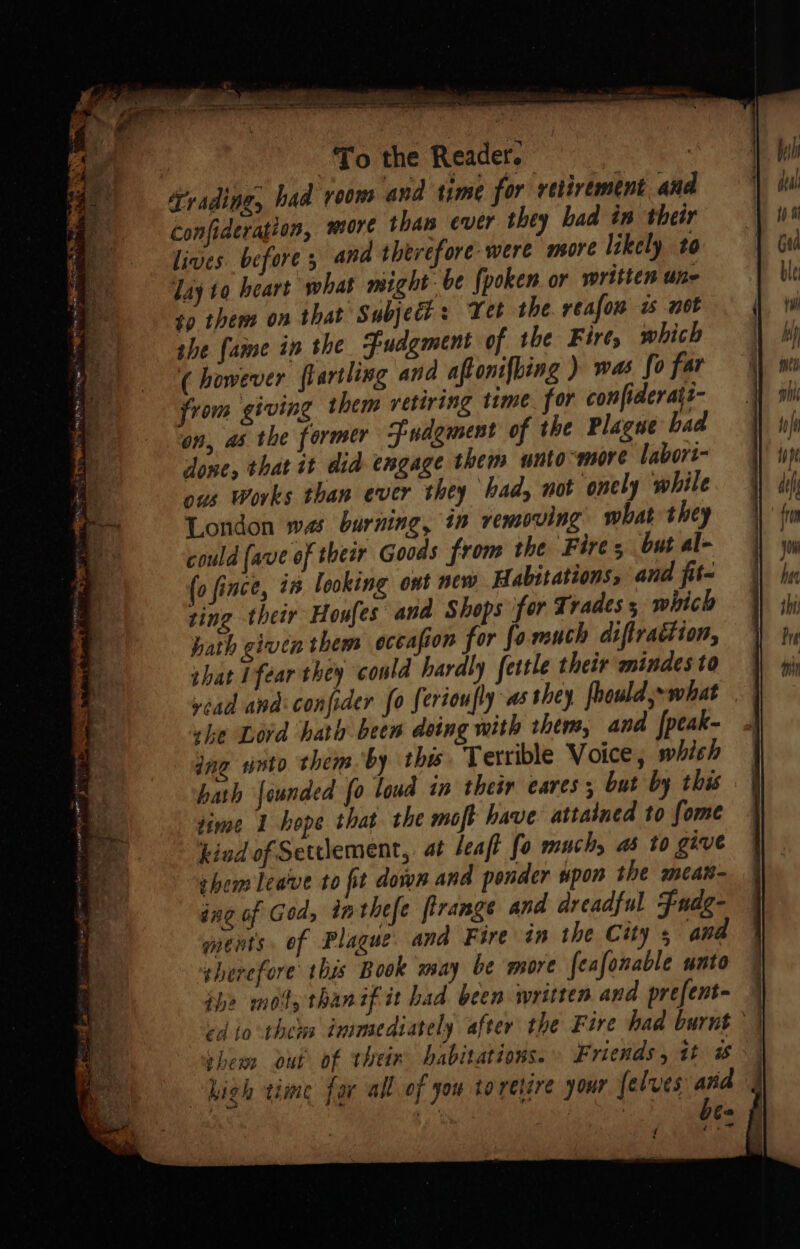 To the Reader.
Trading, had room and time for retirement and
conſideration, more than ever they had in their
lives before; and therefore were more likely to
lay to heart what might be ſpoken or written un-
to them on that Subject: Yet the reaſon is not
the ſame in the Judgment of the Fire, which
( however ſtartling and aſtoniſhing ) was ſo far
from giving them retiring time for conſiderati-
on, as the former Judgment of the Plague had
done, that it did engage them unto more labori-
ous Works than ever they had, not onely while
London was burning, in removing what they
could ſave of their Goods from the Fire; but al-
ſo ſince, in looking out new Habitations, and fit-
ting their Houſes and Shops for Trades; which
hath given them occaſion for ſo much diſtraction,
that I fear they could hardly ſettle their mindes to
read and conſider ſo ſeriouſly as they ſhould, what
the Lord hath been doing with them, and ſpeak-
ing unto them by this Terrible Voice, which
hath ſounded ſo loud in their eares; but by this
time I hope that the moſt have attained to ſome
kind of Settlement, at leaſt ſo much, as to give
them leave to ſit down and ponder upon the mean-
ing of God, in theſe ſtrange and dreadful Judg-
ments of Plague and Fire in the City; and
therefore this Book may be more ſeaſonable unto
the moſt, than if it had been written and preſent-
ed to them immediately after the Fire had burnt
them out of their habitations. Friends, it is
high time for all of you to retire your ſelves and
be-